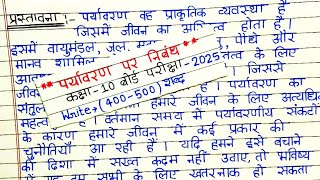 प्रस्तावना :- पर्यावरण वह प्राकृतिक व्यवस्था है
जिसमें जीवन का होता है
इसमें वायुमंडल, जल, पौधे और
मानव के लिए
** पर्यावरण पर निबंध **
कक्षा-10 बोर्ड परीक्षा-2025
Write→(400-500) शब्द
जिससे
पर्यावरण का
हमारे जीवन के लिए अत्यधिक
है। वर्तमान समय में पर्यावरणीय संकटों
के कारण हमारे जीवन में कई प्रकार की
चुनौतियाँ आ रही हैं। यदि हमने इसे बचाने
की दिशा में सख्त कदम नहीं उठाए, तो भविष्य
में यह हम सभी के लिए खतरनाक हो सकता